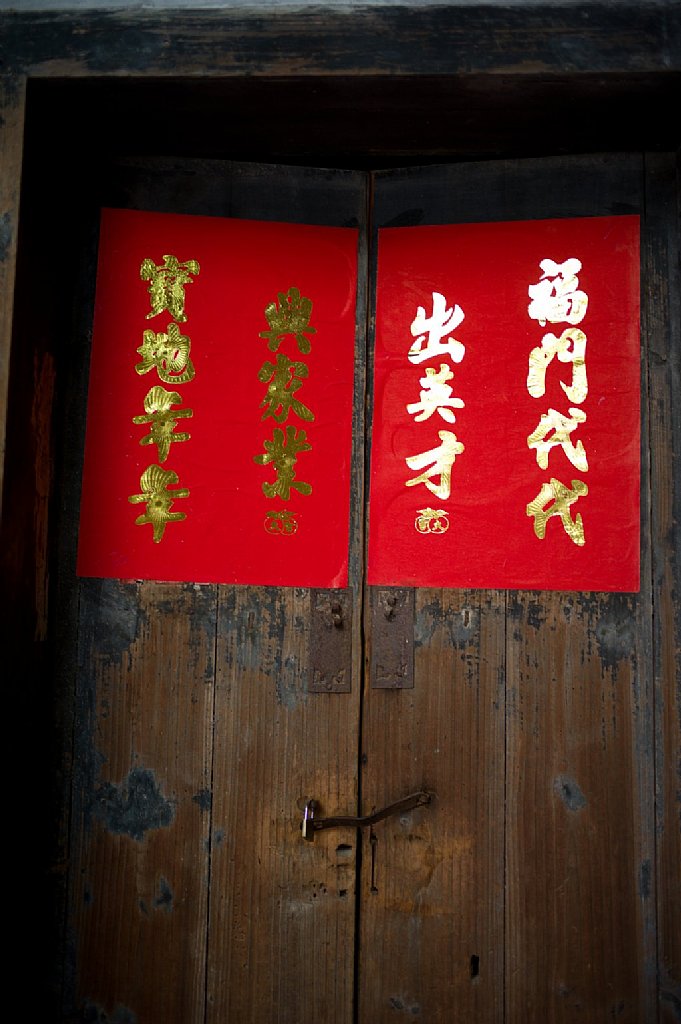 福門代代
出英才
寶地年年
興家業